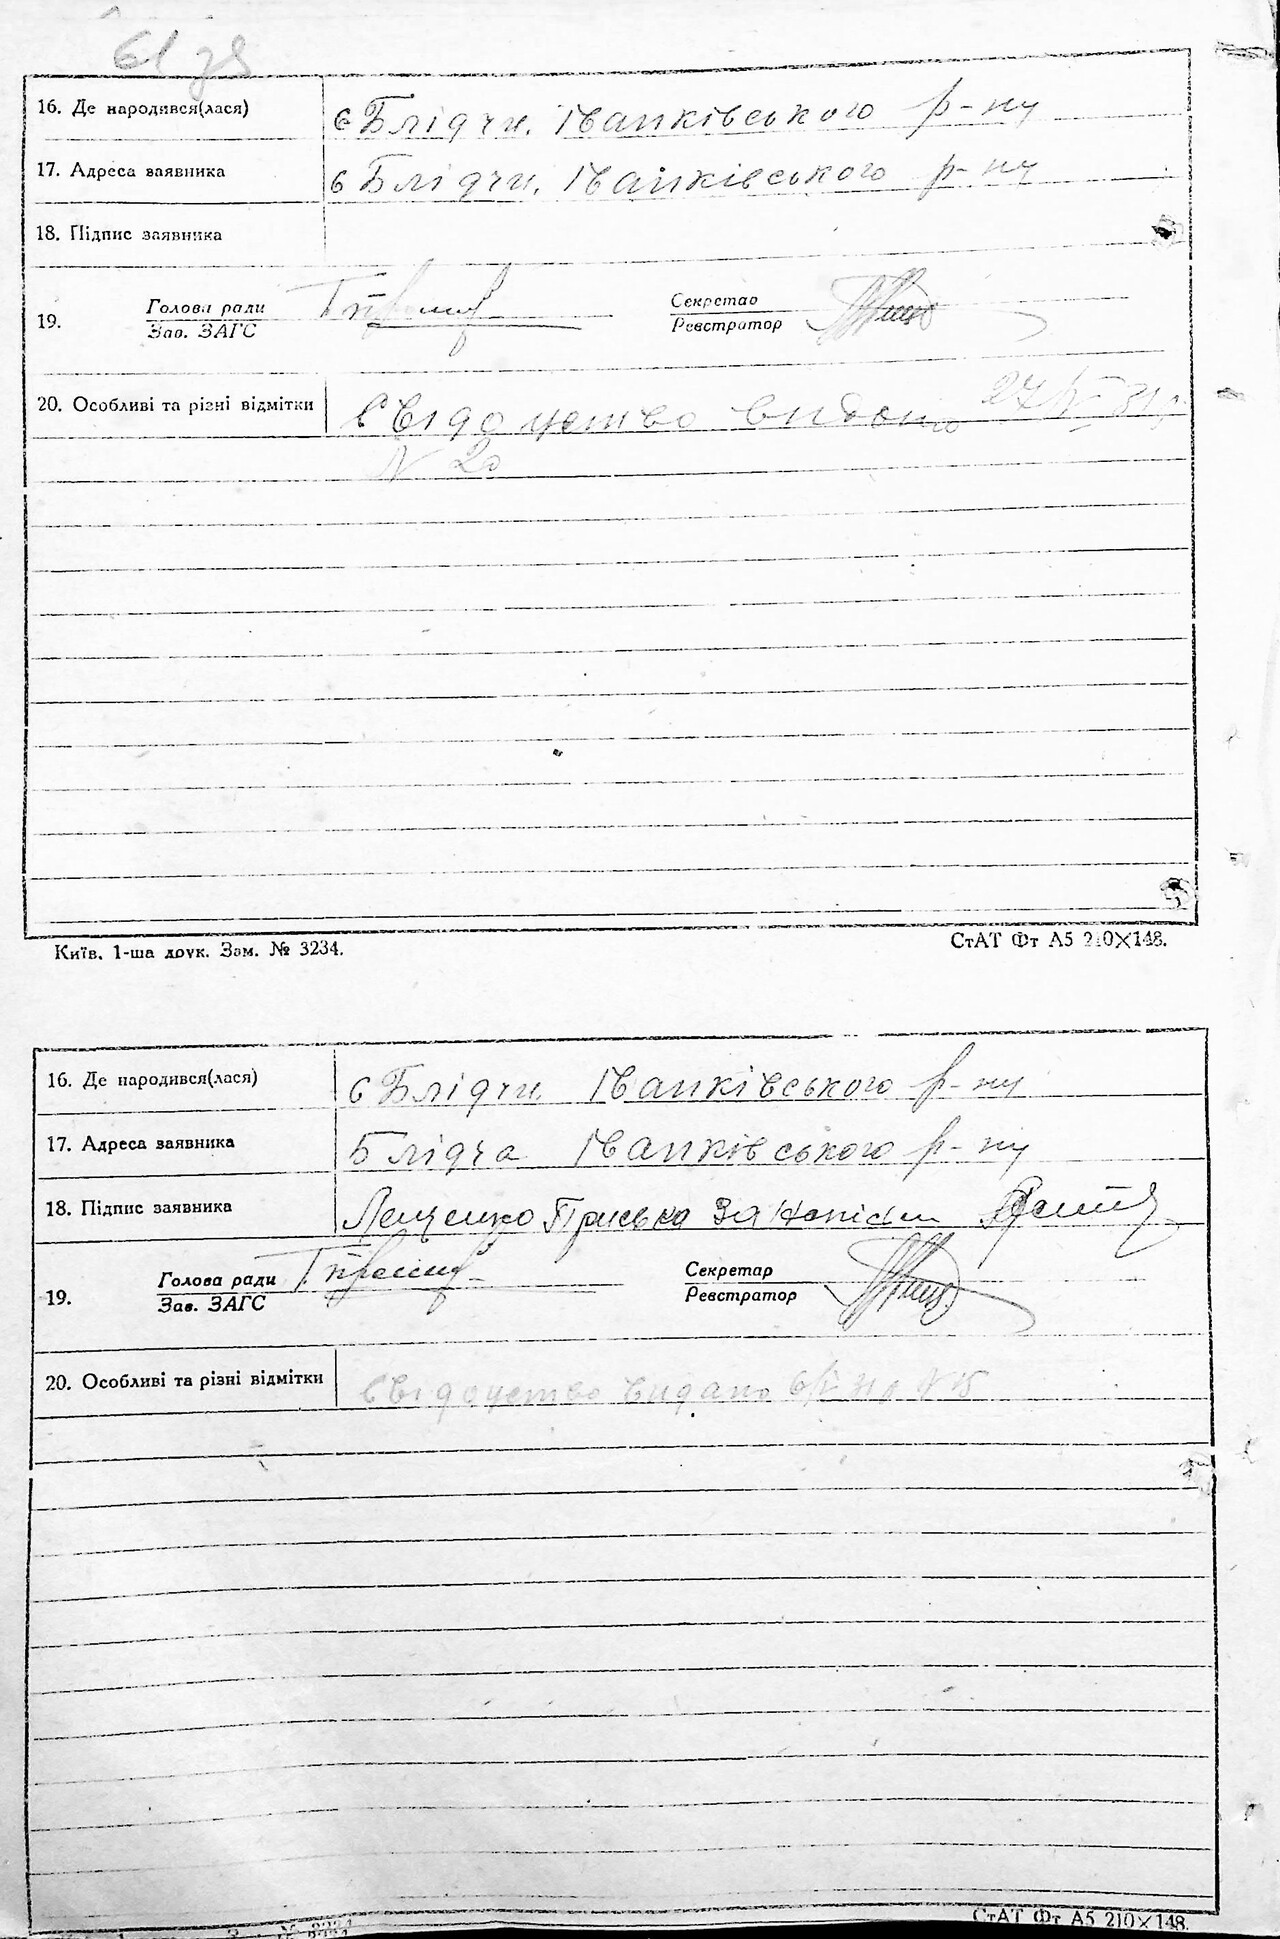 61 зв
16. Де народився(лася) с Блідчи. Іванківського р-ну
17. Адреса заявника с Блідчи. Іванківського р-ну
18. Підпис заявника
19. Голова ради Секретар
Зав. ЗАГС Реєстратор
20. Особливі та різні відмітки Свідоцтво видано 27/V-31 р.
N 20
Київ. 1-ша друк. Зам. № 3234. СтАТ Фт А5 210×148.
16. Де народився(лася) с Блідчи Іванківського р-ну
17. Адреса заявника Блідча Іванківського р-ну
18. Підпис заявника Лещенко Пріська
19. Голова ради Секретар
Зав. ЗАГС Реєстратор
20. Особливі та різні відмітки Свідоцтво видано N 15
СтАТ Фт А5 210×148.